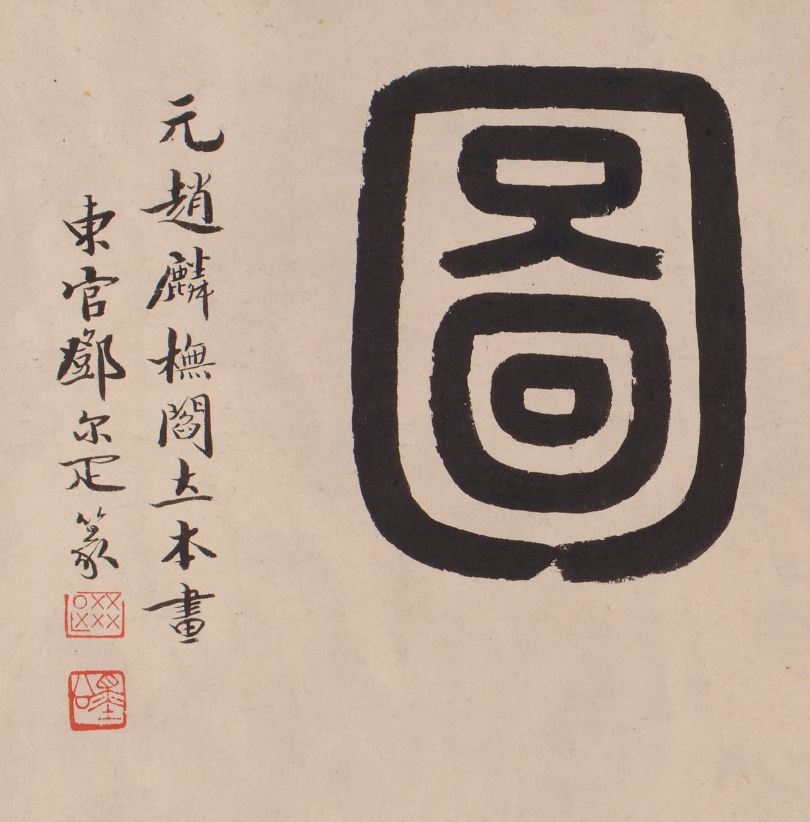 圖
元趙麟橅閻立本畫
東官鄧尔疋篆